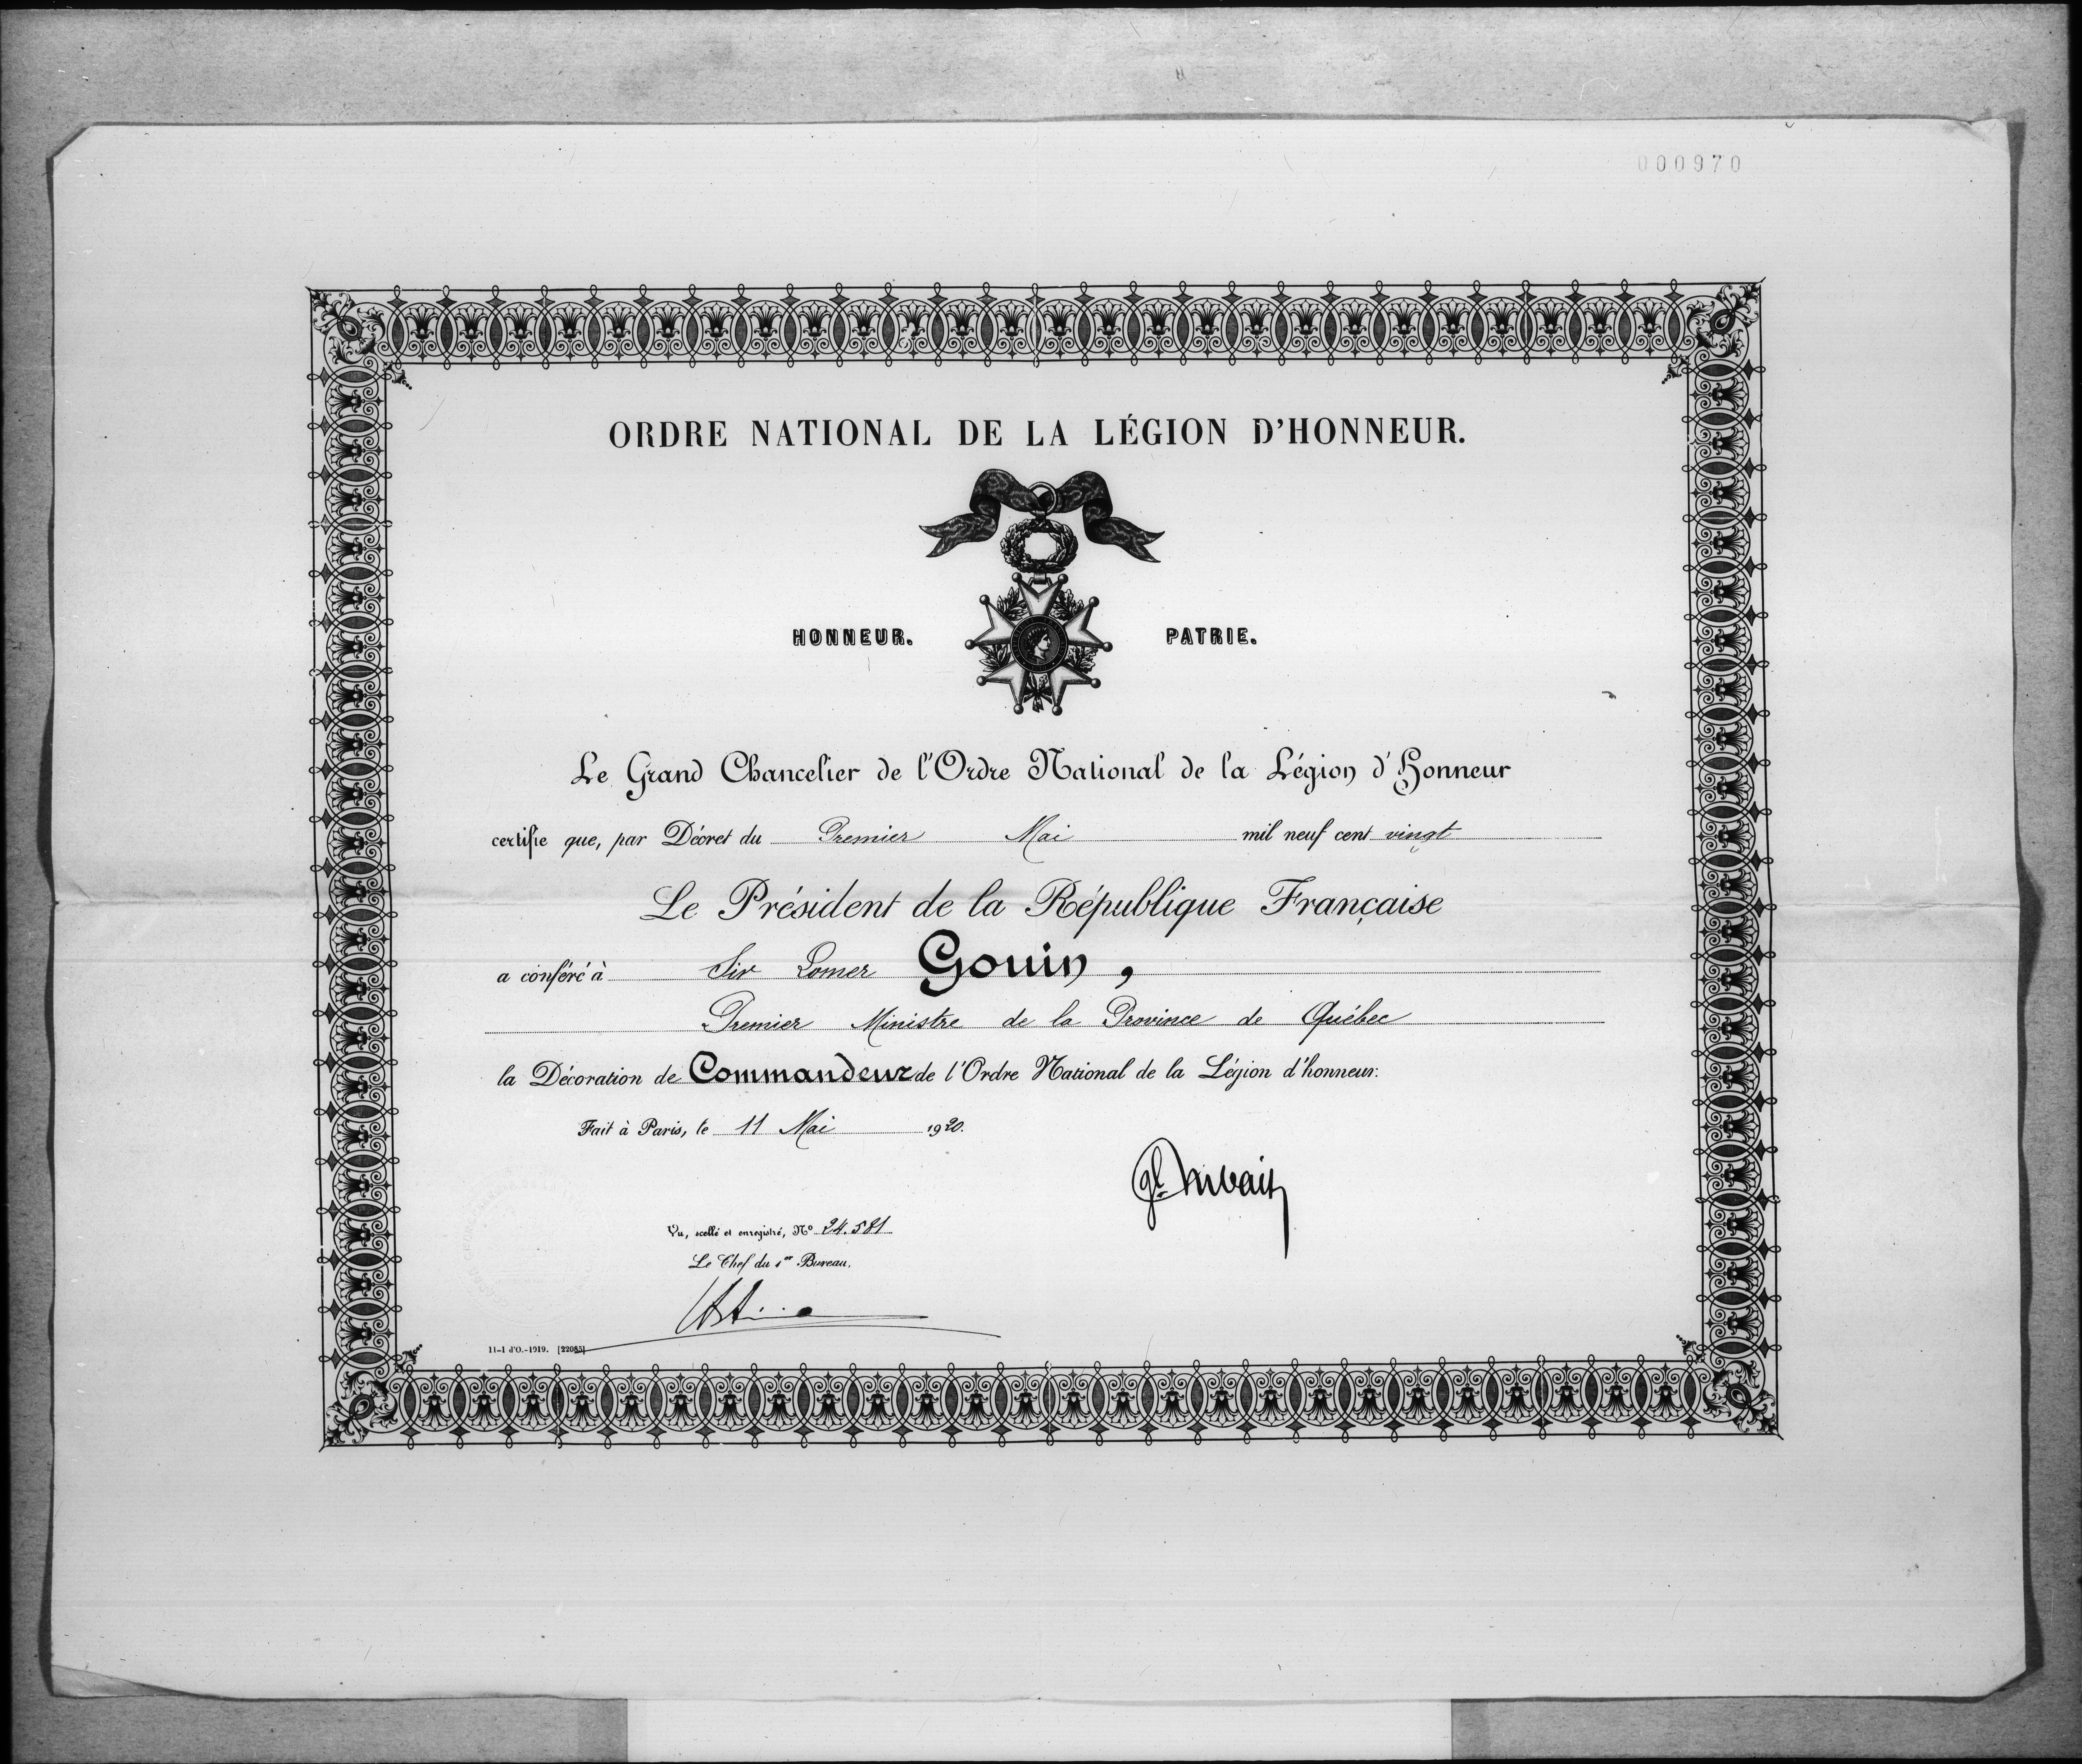 000970
ORDRE NATIONAL DE LA LÉGION D'HONNEUR.
HONNEUR. PATRIE.
Le Grand Chancelier de l'Ordre National de la Légion d'Honneur
certifie que, par Décret du Premier Mai mil neuf cent vingt
Le Président de la République Française
a conféré à Sir Lomer Gouin,
Premier Ministre de la Province de Québec
la Décoration de Commandeur de l'Ordre National de la Légion d'honneur.
Fait à Paris, le 11 Mai 1920.
Vu, scellé et enregistré, Nº 24.581
Le Chef du 1er Bureau,
11-1 d'O.-1919. [22085]